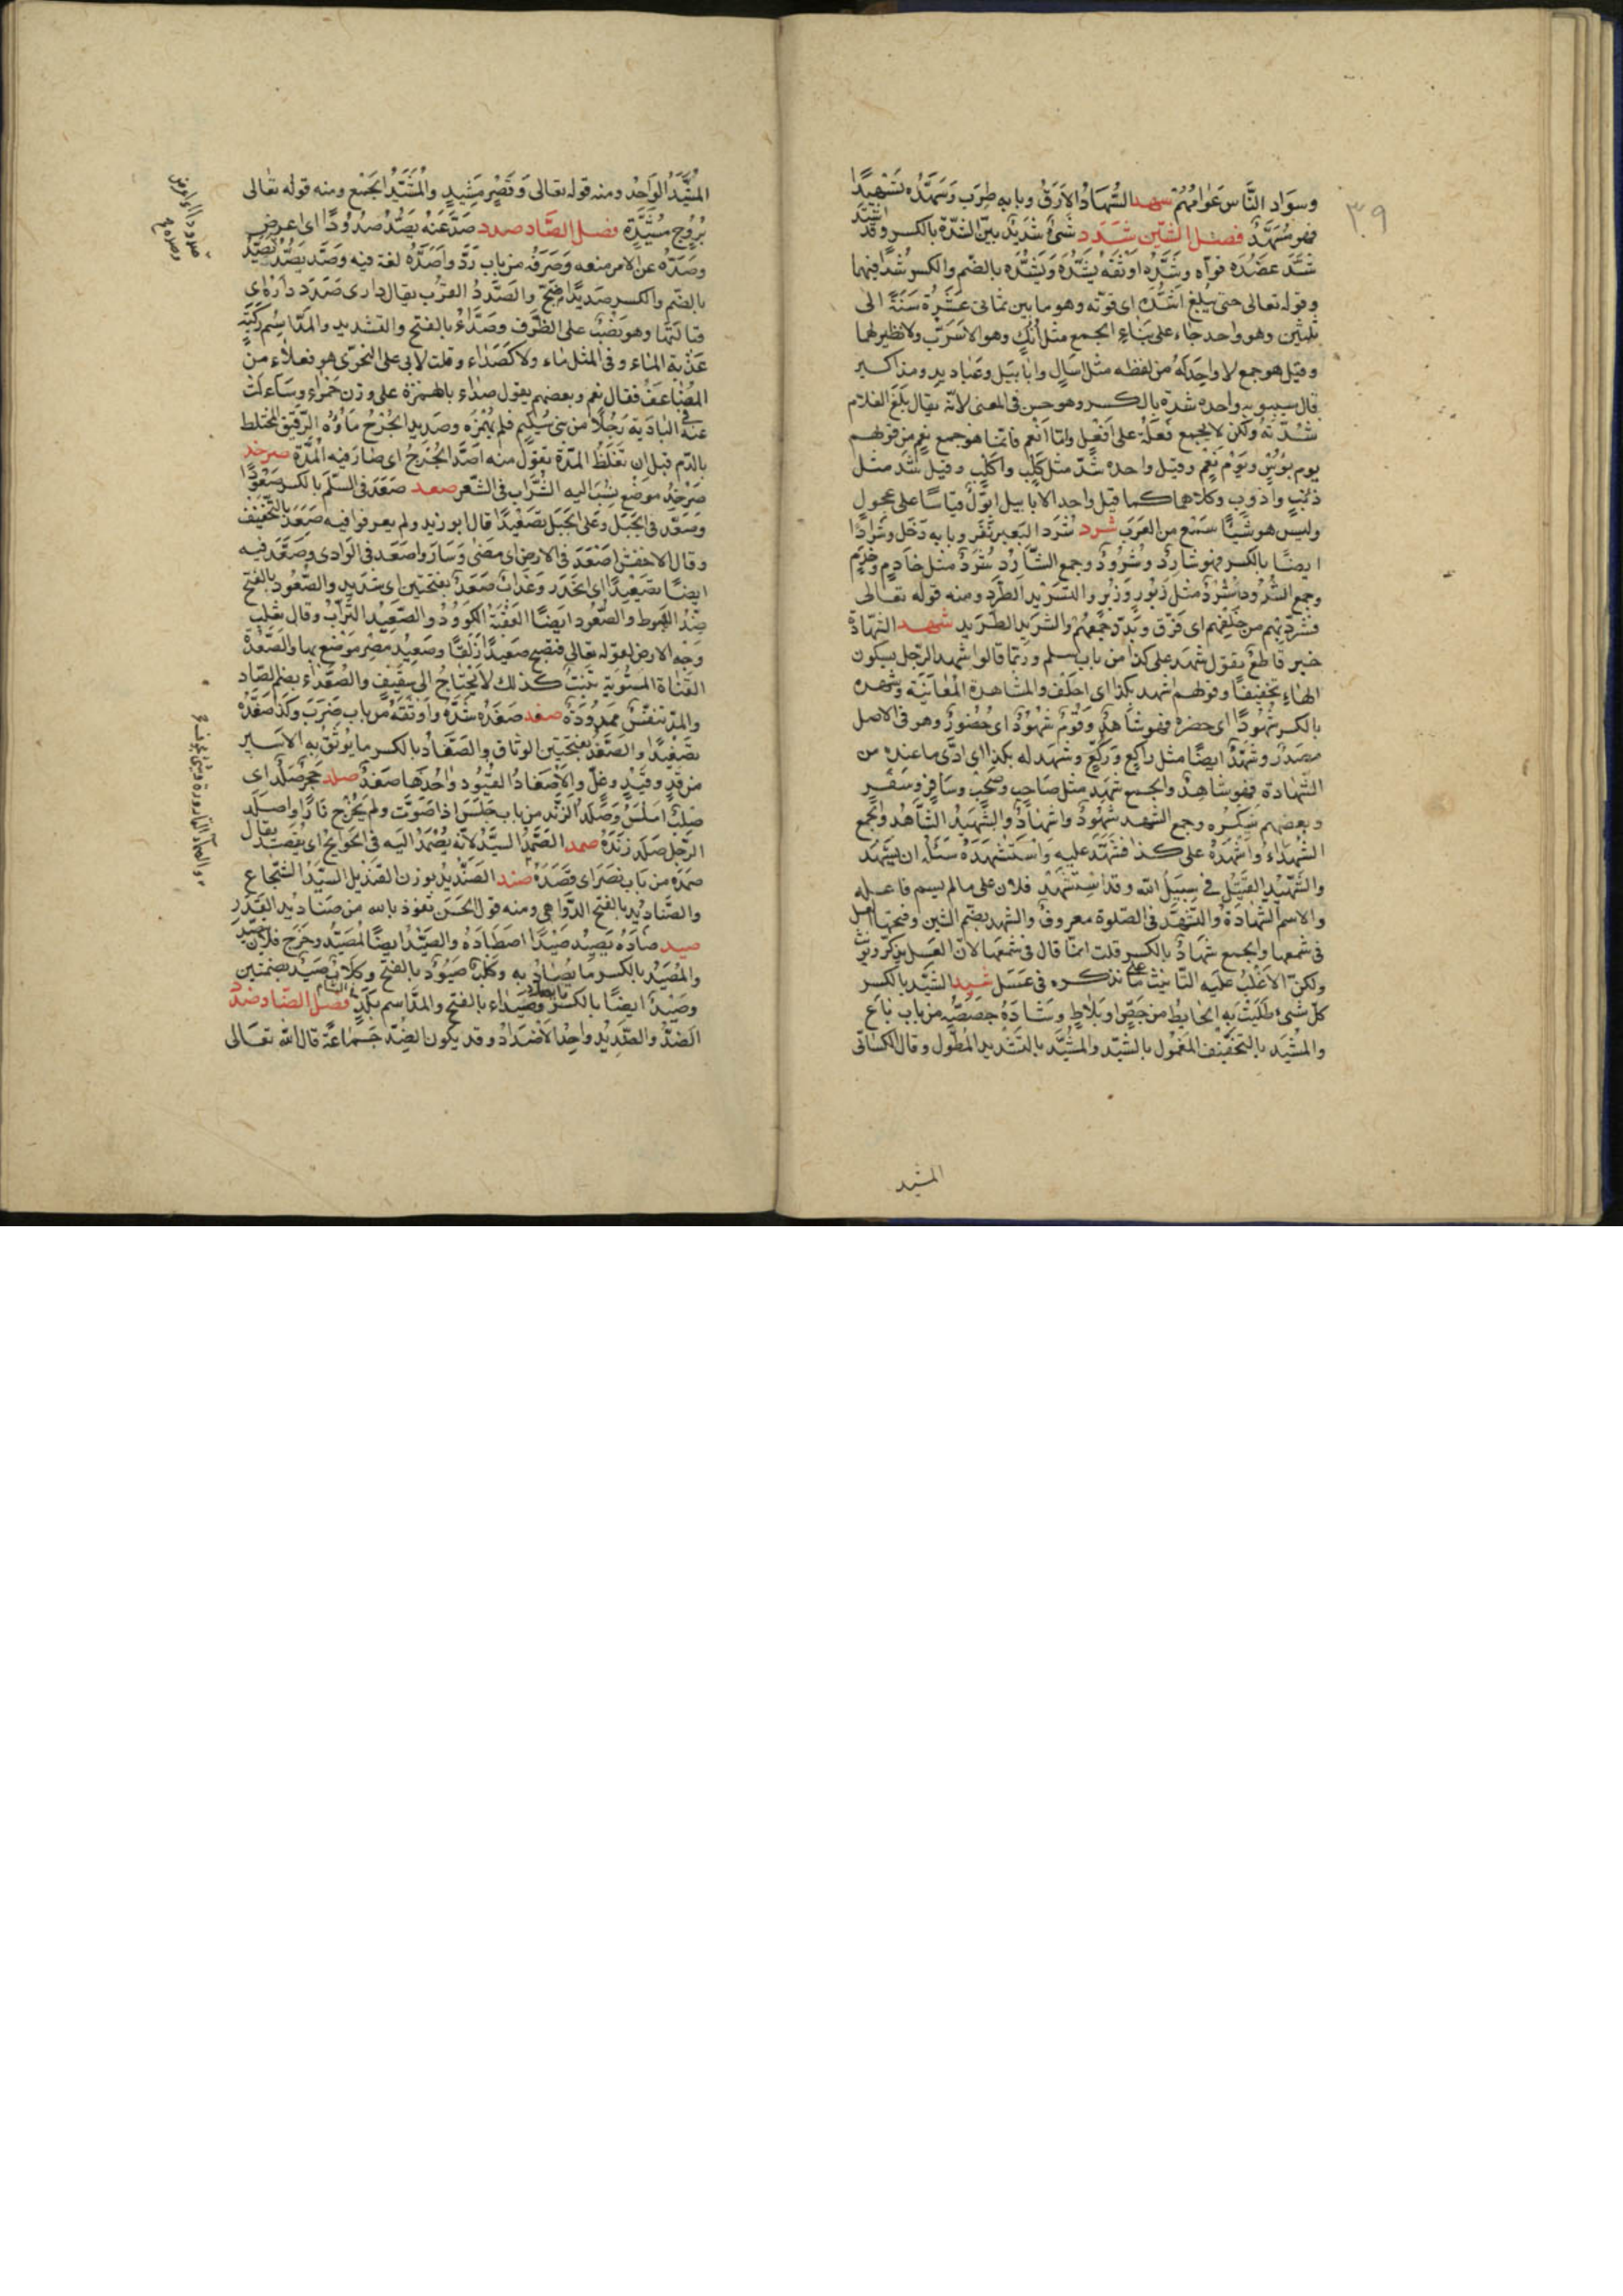 ٣٩
وسواد النَّاس عَوامُّهُمْ سهد السُّهَادُ الاَرَقُ وبابه طرب وسَهَّدَه تَسْهِيدًا
فهو مُسَهَّدٌ فصل الشّين شدد شَىْءٌ شَدِيدٌ بيّن الشدّة بالكسر وقد اشتدّ
شَدَّ عضُدَه قوّاه وشدّه اَوْثَقَهُ يَشُدُّهُ وَيَشِدُّه بالضّم والكسر شَدًّا فيهما
وقوله تعالى حتى يَبْلُغَ اشُدَّه اى قوّته وهو ما بين ثمانى عَشْرة سَنَةً الى
ثلثين وهو واحد جاء على بِنَاءِ الجمع مثل اٰنُكٍ وهو الاسْرُبّ ولا نظير لهما
وقيل هو جمع لا واحِدَ لَهُ من لفظه مثل اسالٍ وابابيل وعباديد ومذاكير
قال سيبويه واحده شدة بالكسر وهو حسن فى المعنى لانّه يقال بَلَغَ الغلام
شدّته ولكن لا يجمع فِعْلَة على اَفْعُلٍ وامّا اَنْعُم فانّما هو جمع نُعْم من قولهم
يوم بُؤْسٍ ويوم نُعْم وقيل واحده شَدٌّ مثل كَلْبٍ واَكْلُبٍ وقيل شِدّ مثل
ذِئبٍ وأذْوبٍ وكلاهما كما قيل واحد الابابيل ابّوْلٌ قياسًا على عِجَّولٍ
وليس هو شيئًا سُمِع من العرب شرد شَرَدَ البَعير نَفَر وبابه دَخَل وشِرادًا
ايضًا بالكسر فهو شارِدٌ وشَرُودٌ وجمع الشّارِد شَرَدٌ مثل خادِمٍ وخَدَمٍ
وجمع الشَّرُود شُرُدٌ مثل زَبُورٍ وَزُبُرٍ والتشريد الطَّرد ومنه قوله تعالى
فشرّد بهم من خلفهم اى فرّق وبدّد جَمْعَهُم والشريد الطريد شهد الشهادة
خبر قاطع تقول شهد على كذا من باب سلم وربّما قالوا شهد الرّجل بسكون
الهاءِ تخفيفًا وقولهم اشهد بكذا اى احلف والمشاهدة المُعايَنَة وشهده
بالكسر شُهُودًا اى حضره فهو شاهد وقوم شهود اى حُضُورٌ وهو فى الاصل
مصدرٌ وشُهّدٌ ايضًا مثل راكِعٍ ورُكَّعٍ وشهد له بكذا اى ادّى ما عنده من
الشّهادة فهو شاهدٌ والجمع شَهْدٌ مثل صاحبٍ وصَحْبٍ وسافرٍ وسَفْرٍ
وبعضهم يُنكِره وجمع الشهد شُهُودٌ واشهادٌ والشَّهيدُ الشّاهِدُ والجمع
الشُّهَداءُ واَشْهَدَهُ على كذا فشَهِدَ عليه واستشهَدَهُ سَئَلَهُ ان يشهد
والشَّهِيْدِ القَتِيْل فى سبيل الله وقد استُشْهِدَ فلان على ما لم يسم فاعله
والاسم الشهادَةُ والتَشَهُّد فى الصّلوة معروفٌ والشهد بضمّ الشين وفتحها العسل
فى شمعها والجمع شِهادٌ بالكسر قلت انمّا قال فى شمعها لانّ العَسل يذكّر ويؤنث
ولكن الاغلب عليه التانيث على ما نذكره فى عَسَل شيد الشِّيْد بالكسر
كلّ شىء طَلَيْتَ به الحايط من جَصٍّ او بلاط وشادَهُ جصّصه من باب باع
والمَشِيْد بالتخفيف المعمول بالشيد والمُشَيَّد بالتشديد المُطَوّل وقال الكسائى
المشيد
المَشِيْدُ الواحِد ومنه قوله تعالى وَقَصْرٍ مَشِيدٍ والمُشَيَّد الجَمْع ومنه قوله تعالى
بُرُوجٍ مُشَيَّدَةٍ فصل الصّاد صدد صدَّ عنْهُ يصُدُّ صُدُودًا اى اعرض
وصَدَّه عن الامر منعه وصَرَفه من باب ردّ واَصَدَّه لغة فيه وصَدَّ يَصُدُّ ويَصِدُّ
بالضّم والكسر صَديدًا ضَجّ والصَّدَدُ القُرْب يقال دارى صَدَدَ داره اى
قبالتها وهو نصب على الظّرف وصَدّاءُ بالفتح والتشديد والمدّ اسم ركيّة
عَذْبة الماء وفى المثل ماء ولا كصدّاء وقلت لابى على النحوىّ هو فعلاء من
المضاعف فقال نعم وبعضهم يقول صَداء بالهمزة على وزن حمراء وسَاَءلت
عنه فى البادية رجُلاً من بنى سُلَيْمٍ فلم يَهْمِزْه وصديد الجُرْح ماؤُه الرقيق المختلط
بالدّم قبل ان تَغلُظُ المِدّة تقول منه اصدّ الجُرْح اى صار فيه المِدّة صرخد
صَرْخَدُ موضع نُسِب اليه الشَّراب فى الشّعر صعد صَعِدَ فى السّلّم بالكسر صُعُودًا
وصَعَّد فى الجَبَل وعلى الجَبَل تصعيدًا قال ابو زيد ولم يعرفوا فيه صَعِدَ بالتخفيف
وقال الاخفش اصْعَدَ فى الارض اى مضى وسَارَ واصعد فى الوادى وصَعّدَ فيه
ايضًا تَصْعيدًا اى انحدر وعَذابٌ صَعَدٌ بفتحتين اى شديد والصَّعُود بالفتح
ضدّ الهَبوط والصَّعُود ايضًا العَقَبَة الكَؤُودُ والصَّعِيدُ التّراب وقال ثعلب
وَجْهُ الارض لقوله تعالى فتصبح صَعيدًا زلقًا وصَعِيْدُ مِصْر مَوْضع بها والصَّعْدَة
القناة المستوية تَنْبُتُ كذلك لا تحتاج الى تثقيف والصُّعَداء بضم الصّاد
والمدّ تنفّسٌ ممدُودَةٌ صفد صفَدَهُ شدّهُ واوثقَهُ من باب ضَرَب وكذا صَفَّدَهُ
تصفيدًا والصَّفَدُ بفتحتين الوثاق والصّفاد بالكسر ما يُوثَقُ به الاسير
من قدٍّ وقَيْدٍ وغلّ والاَصفاد القُيُود واحدها صفَدٌ صلد حَجَرٌ صَلْدٌ اى
صُلْبٌ املس وصَلَدَ الزّند من باب جلس اذا صَوّتَ ولم يُخرِج نارًا واصلد
الرّجل صلد زَنْدُهُ صمد الصَّمَدُ السيّدُ لانّه يُصْمَدُ اليه فى الحوايج اى يُقصد يقال
صمَدَه من باب نصر اى قَصَدَهُ صند الصِّنْدِيد بوزن القنديل السيّد الشّجاع
والصّناديد بالفتح الدّواهى ومنه قول الحَسَن نعوذ بالله من صَنادِيد القَدَر
صيد صادَهُ يَصِيْدُه صَيْدًا اصطادَهُ والصَّيْدُ ايضًا المُصَيَّدُ وخرج فلان يتصيّد
والمِصْيَدُ بالكسر ما يُصادُ به وكلبٌ صَيُوْد بالفتح وكلاب صُيُدٌ بضمّتين
وصِيْدٌ ايضًا بالكسر وصَيْداء بالفتح والمدّ اسم بلد بالشام فصل الضّاد ضدد
الضِدُّ والضّديد واحِدُ الاَضدادُ وقد يكون الضِدُّ جَماعَةً قال الله تعالى